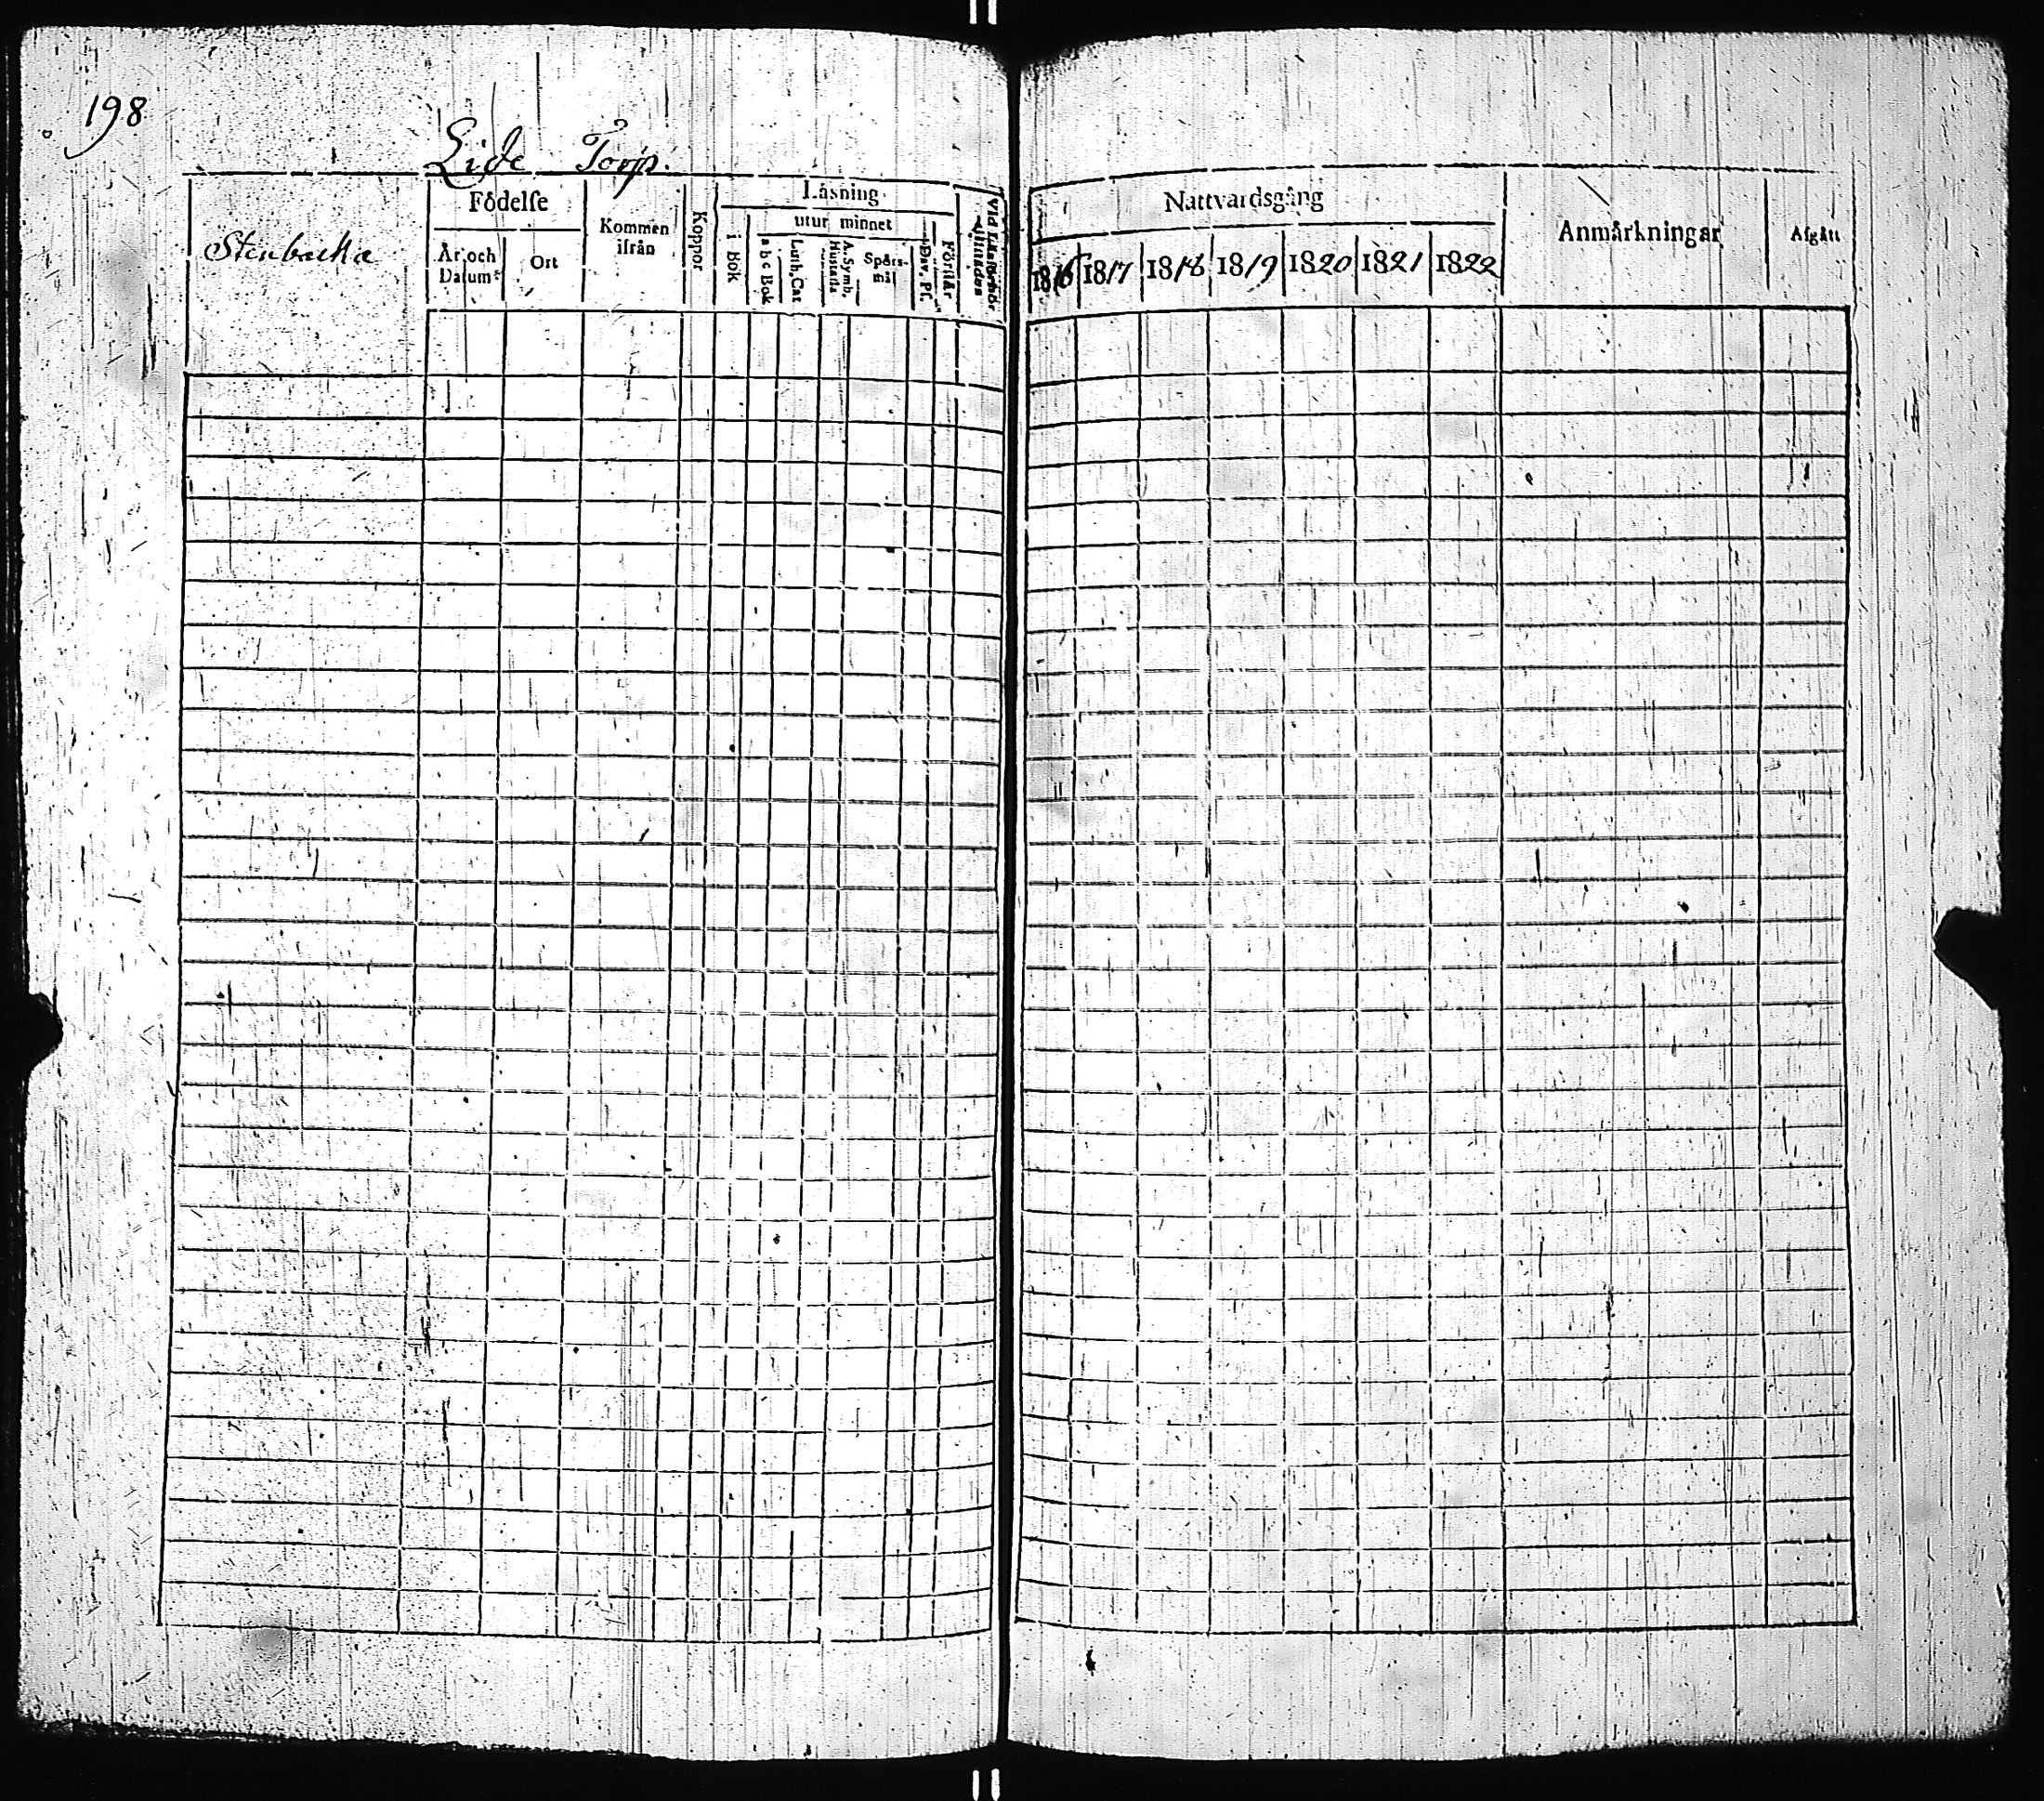 198
Lide Torp.
Stenbacka
Födelſe
År och Datum
Ort
Kommen ifrån
Koppor
Läsning
i Bok
utur minnet
a b c Bok
Luth. Cat
Hustafla
A. Symb.
Spörs-
mål
Dav. Pſ.
Förſtår
Nattvardsgång
1816 1817 1818 1819 1820 1821 1822
Anmärkningar
Afgått